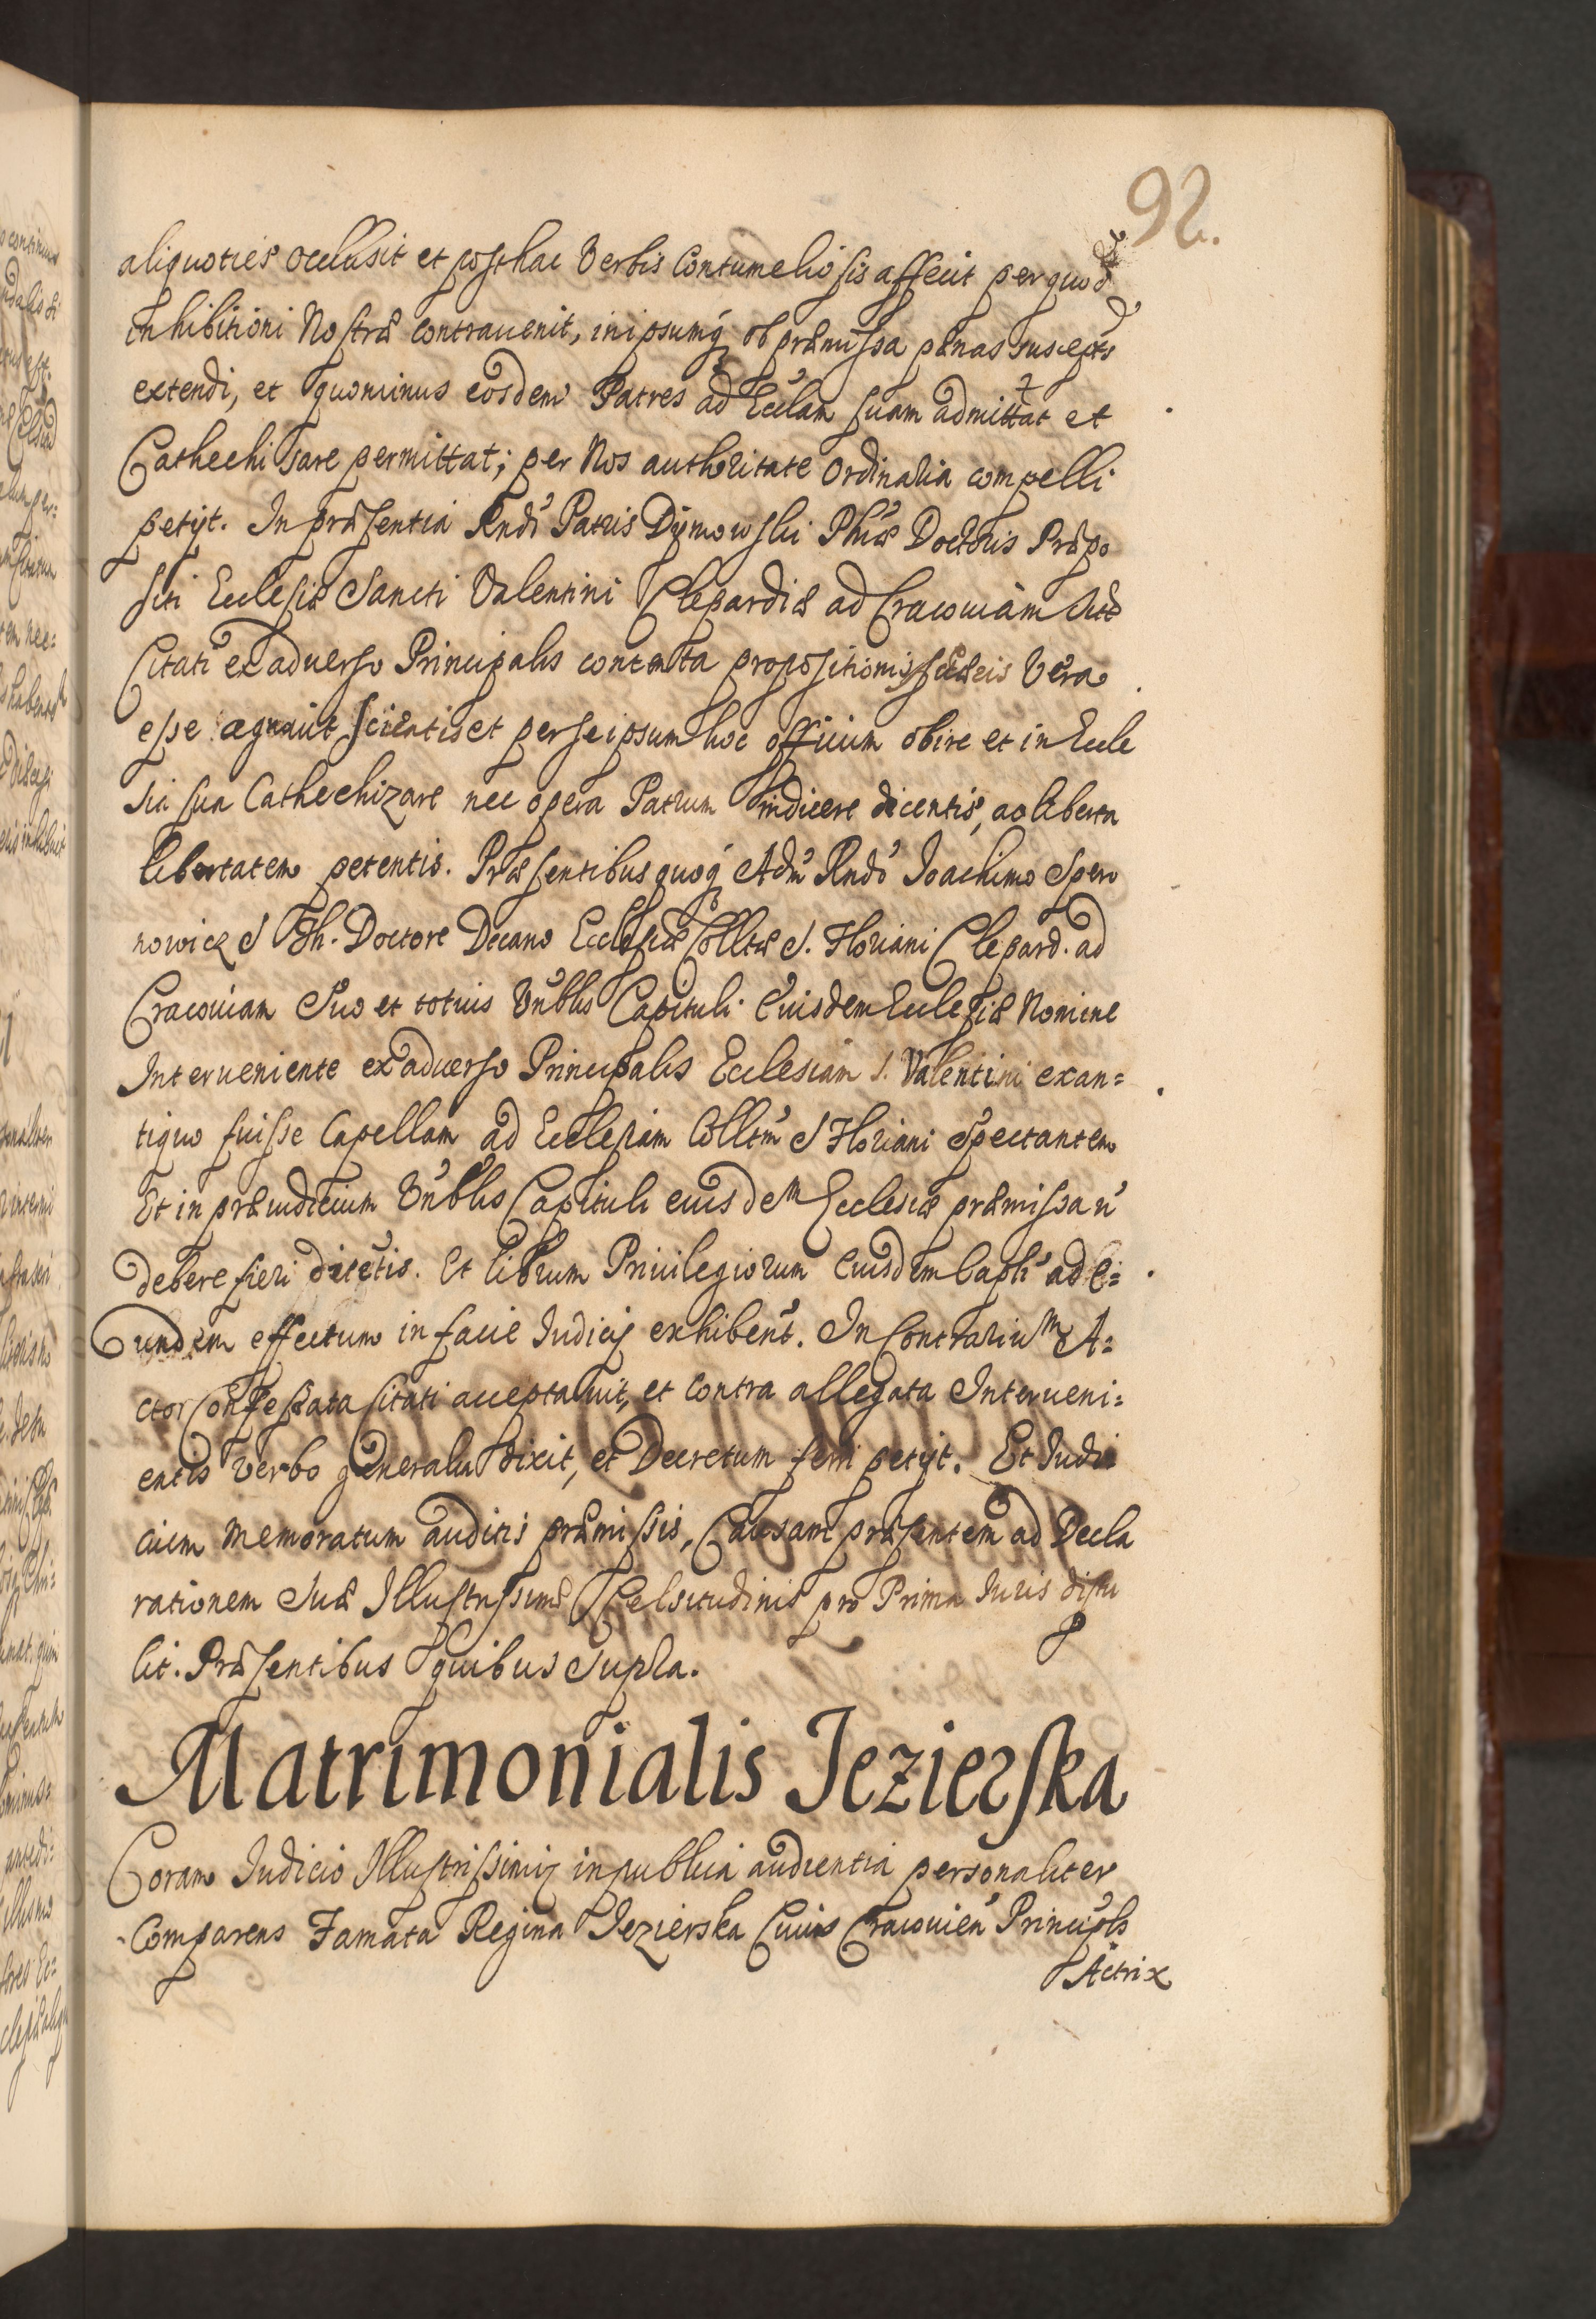 92.
aliquoties occlusit et posthac Verbis Contumeliosis affecit per quod
inhibitioni Nostræ contrauenit, in ipsumq́ ob præmissa pænas susceptæ
extendi, et quominus eosdem Patres ad Eccl̃am suam admittat et
Cathechisare permittat; per Nos authoritate Ordinaria compelli
petijt. In præsentia Rndi Patris Dymowski Phiæ Doctoris Præpo
siti Ecclesiæ Sancti Valentini Clepardiæ ad Cracouiam
Citati ex aduerso Principalis contenta propositionis Vera
esse agnouit et per se ipsum hoc officium obire et in Eccle
sia sua Cathechizare nec opera Patrum indicere dicentis, ac liberta
libertatem petentis. Præsentibus quoq́ Adm̃ Rndo Ioachimo Spero
nowicz S Th. Doctore Decano Ecclesiæ Colltæ S. Floriani Clepard. ad
Cracouiam Suo et totuis Vñblis Capituli Euisdem Ecclesiæ Nomine
Interueniente ex aduerso Principalis Ecclesiam S. Valentini exan=
tiquo fuisse Capellam ad Ecclesiam Colltm̃ S Floriani Spectantem
Et in præiudicium Vñblis Capituli euisdem Ecclesiæ præmissa ñ
debere fieri dicẽtis. Et librum Priuilegiorum Euisdem Capli ad E=
undem effectum in facie Iudicij exhibent. In Contrarium A=
ctor Confessata Citati acceptauit, et contra allegata Interueni=
entis Verbo generalia dixit, et Decretum ferri petijt. Et Iudi
cium memoratum auditis præmissis, Causam præsentem ad Decla
rationem Suæ Illustrissimæ Celsitudinis pro Prima Iuris distu
lit. Præsentibus quibus Supra.
Matrimonialis Iezierska
Coram Iudicio Illustrissimi in publica audientia personaliter
Comparens Famata Regina Iezierska Ciuis Cracouień Principls
Actrix